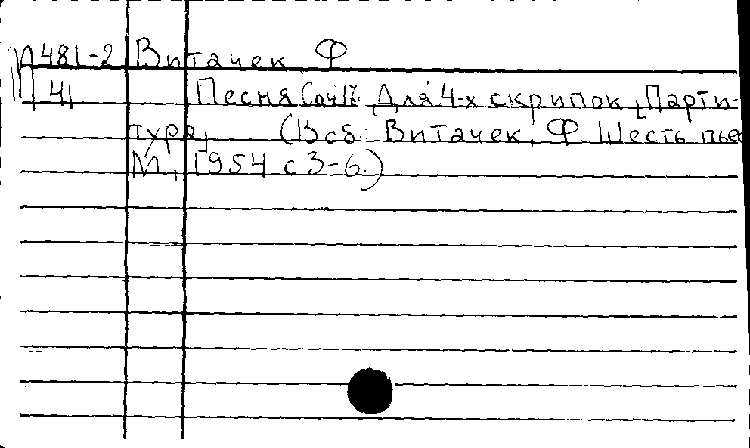 П481-2 Витачек Ф
П41 Песня Соч17 Для 4-х скрипок, Парти-
тура, (В сб: Витачек, Ф Шесть пьес
М, 1954 с 3-6.)